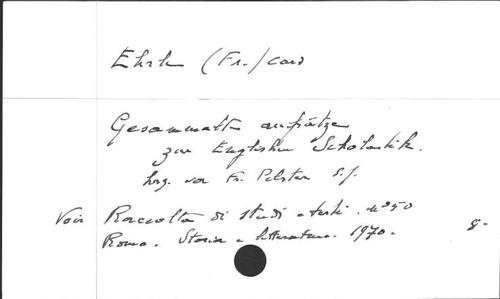 Ehrle (Fr.) card
Gesammelte aufsätze
zur Englischen Scholastik.
hrg. von Fr. Pelster S.J.
Voir Raccolta di studi e testi. nº 50
Roma. Storia e letteratura. 1970.
8-